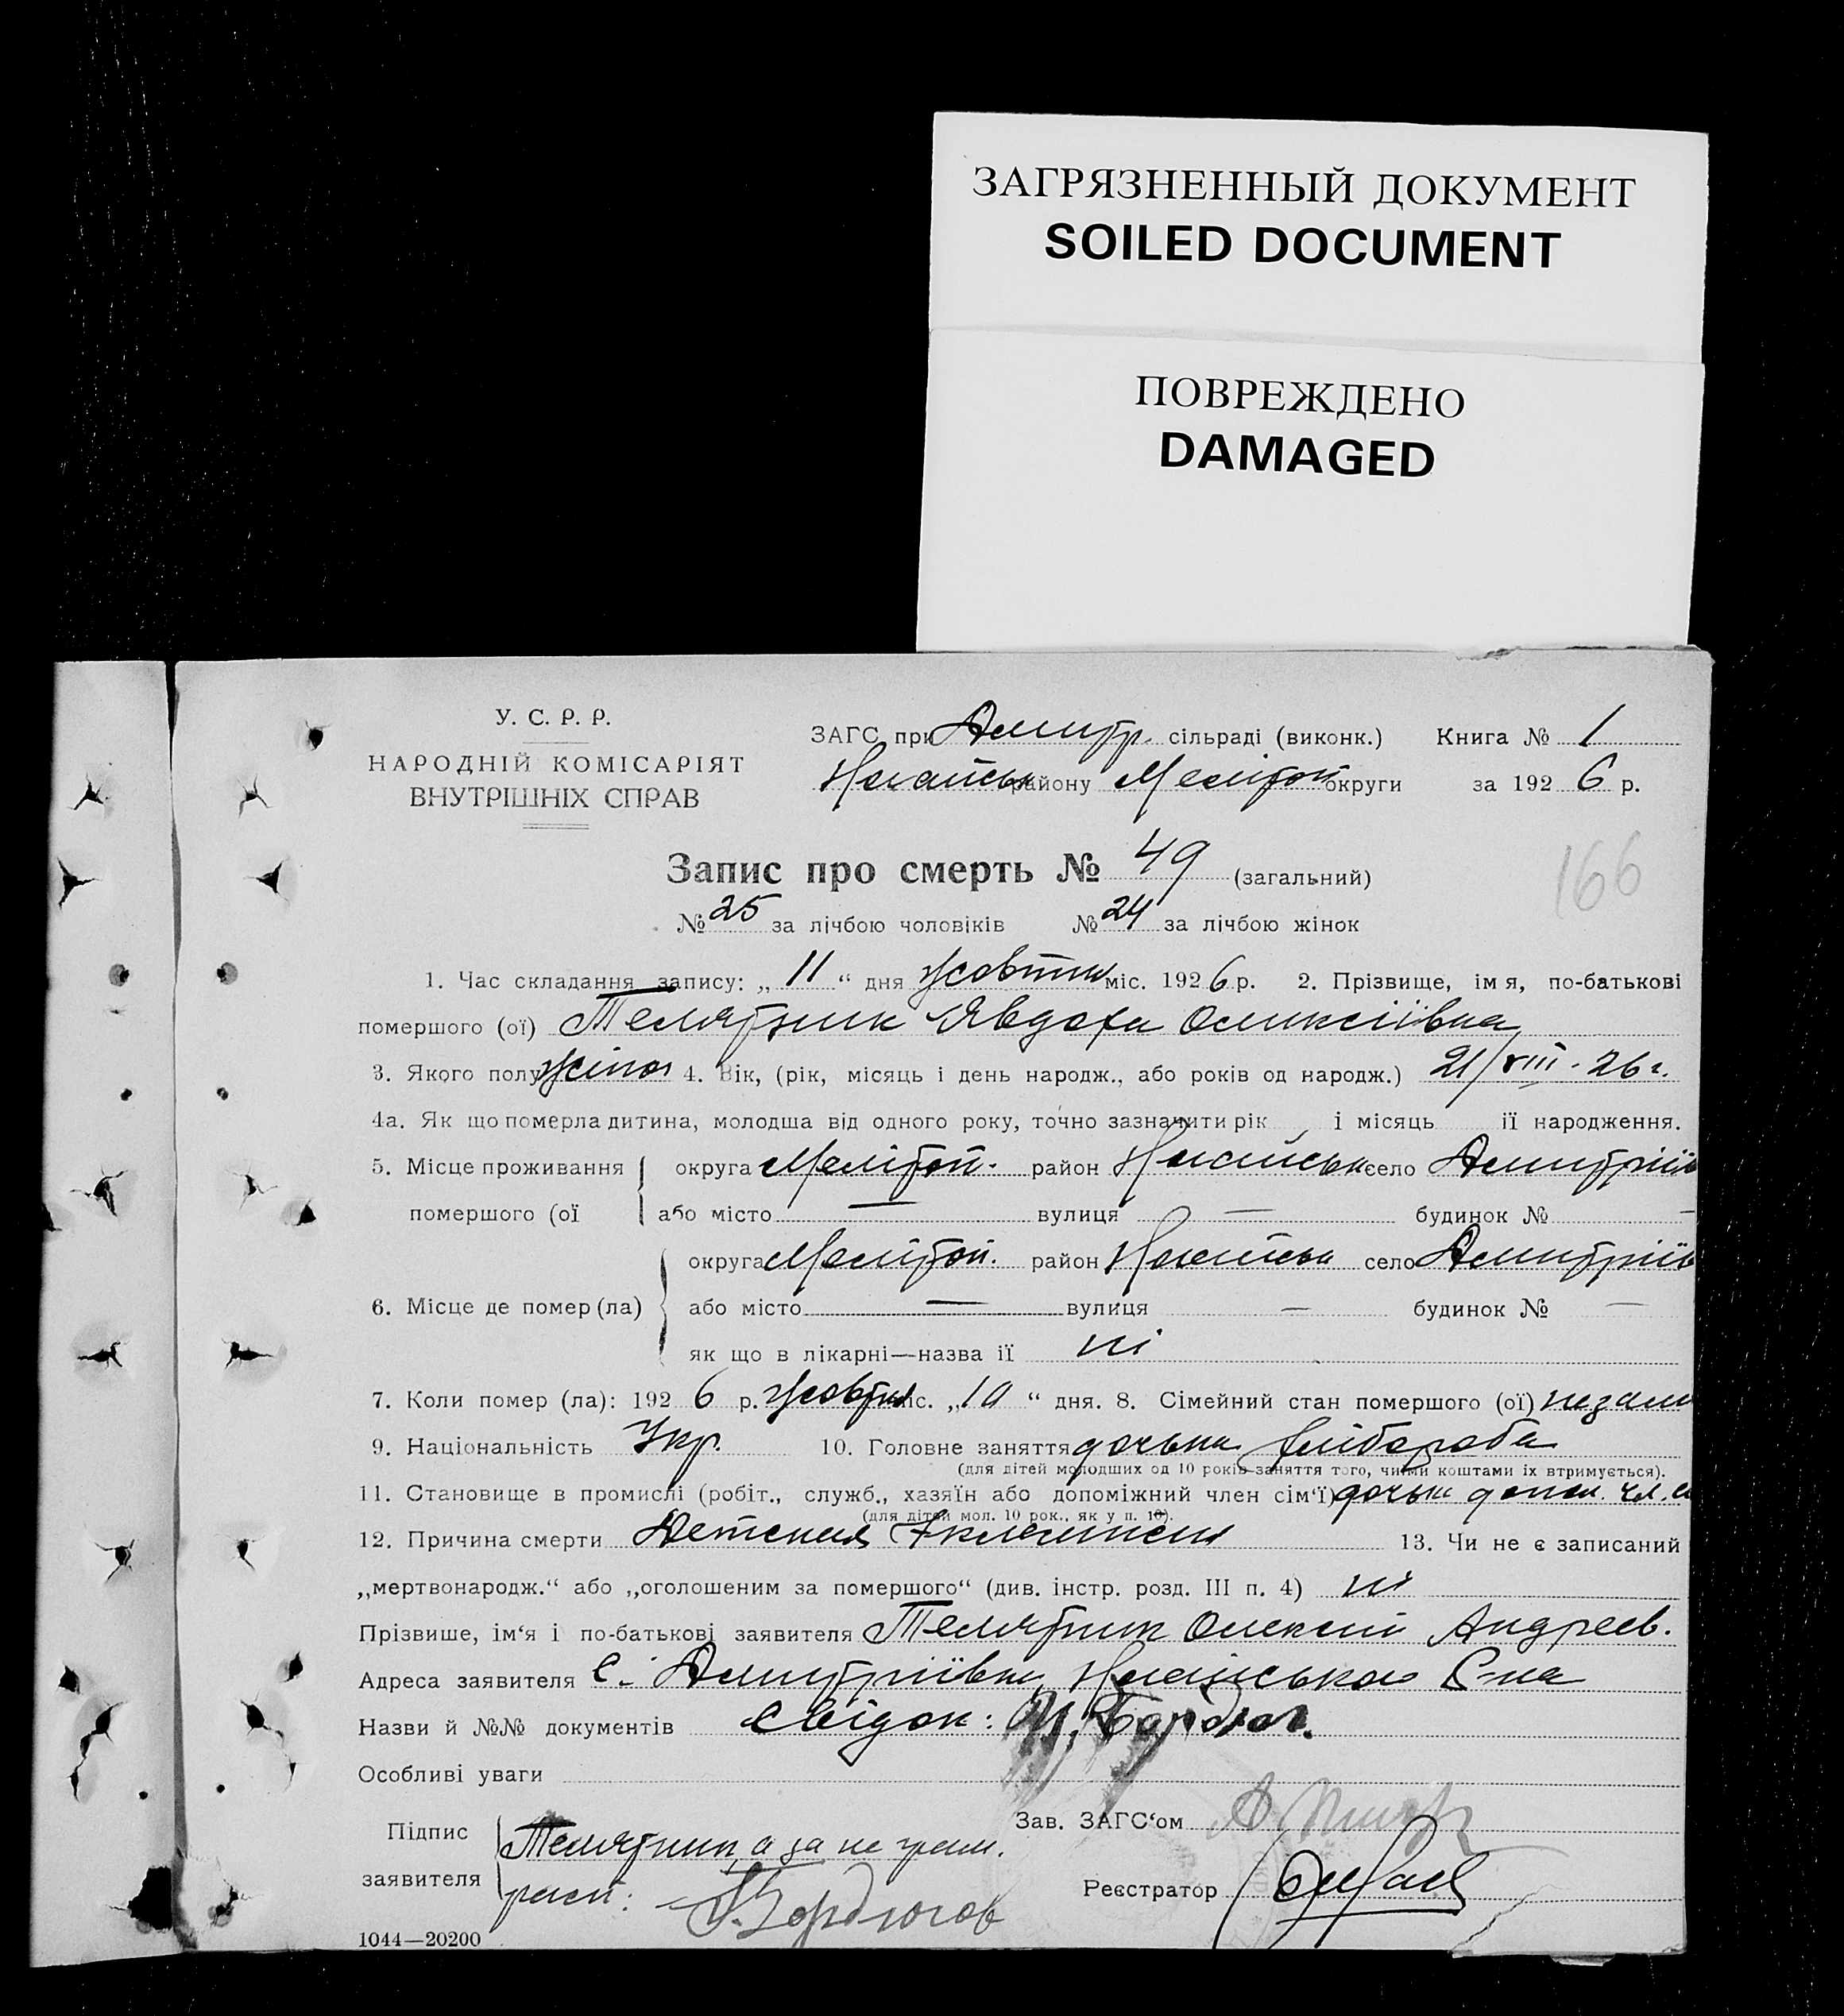 ЗАГРЯЗНЕННЫЙ ДОКУМЕНТ
SOILED DOCUMENT
ПОВРЕЖДЕНО
DAMAGED
У. С. Р. Р.
НАРОДНІЙ КОМІСАРІЯТ
ВНУТРІШНІХ СПРАВ
ЗАГС при Дмитр. сільраді (виконк.) Книга № 1
району Мелітоп округи за 1926 р.
Запис про смерть № 49 (загальний)
166
№ 25 за лічбою чоловіків № 24 за лічбою жінок
1. Час складання запису: „ 11 “ дня жовтня міс. 1926 р. 2. Прізвище, ім я, по-батькові
помершого (ої) Телятник Явдоха Оликсіївна
3. Якого полу жіноч 4. Вік, (рік, місяць і день народж., або років од народж.) 21/VIII-26 г.
4а. Як що померла дитина, молодша від одного року, точно зазначити рік і місяць її народження.
5. Місце проживання округа Мелітоп. район село Дмитріїв
помершого (ої або місто — вулиця — будинок № —
округа Мелітоп. район село Дмитріїв
6. Місце де помер (ла) або місто — вулиця — будинок № —
як що в лікарні—назва її ні
7. Коли помер (ла): 1926 р. жовтня міс. „10 “ дня. 8. Сімейний стан помершого (ої) незам
9. Національність Укр. 10. Головне заняття дочька хлібороба
(для дітей молодших од 10 років заняття того, чиїми коштами їх втримується).
11. Становище в промислі (робіт., служб., хазяїн або допоміжний член сім'ї) дочьки допом. чл. с
(для дітей мол. 10 рок., як у п. 10).
12. Причина смерти Детская 13. Чи не є записаний
„мертвонародж.“ або „оголошеним за помершого“ (див. інстр. розд. III п. 4) ні
Прізвише, ім'я і по-батькові заявителя Телятник Олексій Андреев.
Адреса заявителя с. Дмитріївка, Р-на
Назви й №№ документів Свідок:
Особливі уваги
Підпис
заявителя
Телятник, а за не грам.
расп: Бордюгов
Зав. ЗАГС'ом
Реєстратор
1044—20200